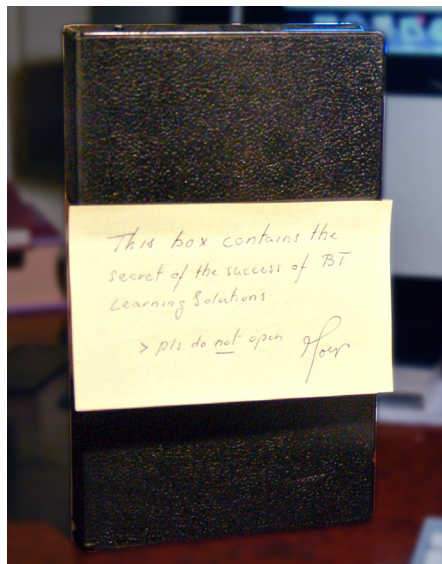 This box contains the
secret of the success of BT
Learning Solutions
> pls do not open